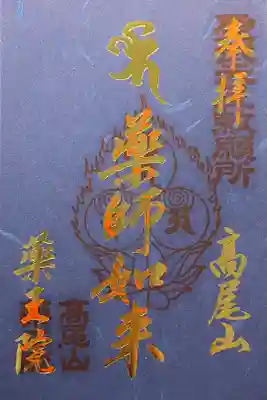 奉拝
高尾山
薬師如来
薬王院
高尾山